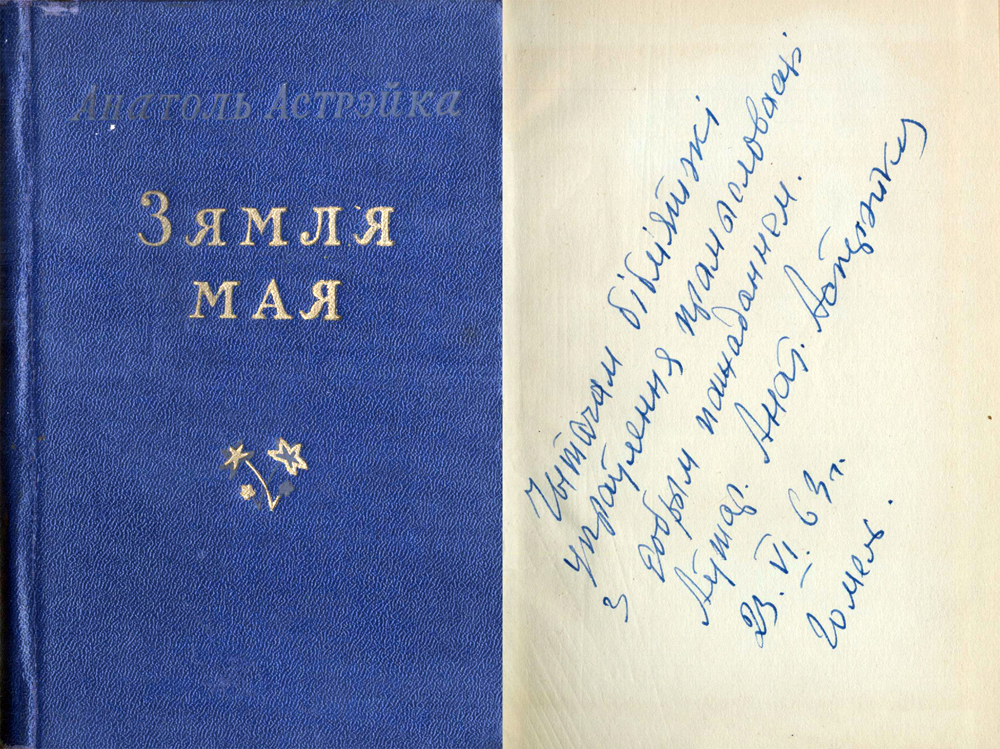 Анатоль Астрэйка
Зямля
мая
Чытачам бібліятэкі
упраўлення прамысловасці
з добрым пажаданнем.
Аўтар. Анат. Астрэйка
23.VI.63 г.
Гомель.